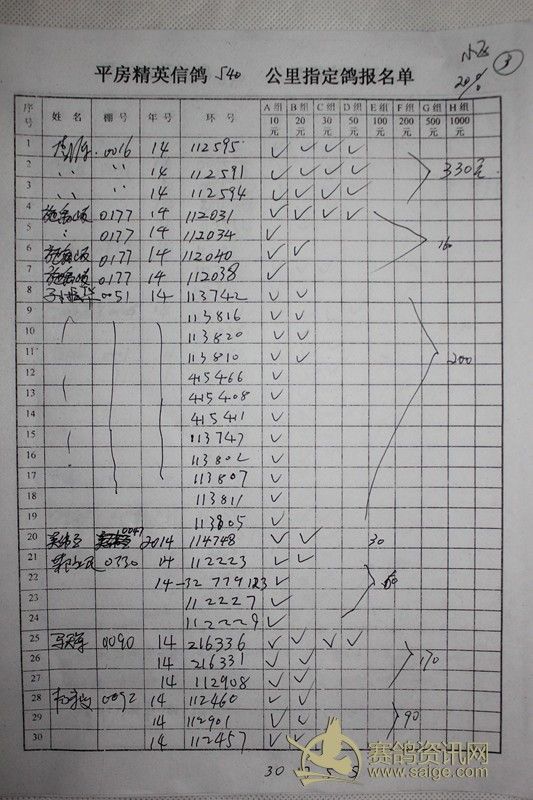 小飞
20%
3
平房精英信鸽 540 公里指定鸽报名单
序号 姓名 棚号 年号 环号 A组10元 B组20元 C组30元 D组50元 E组100元 F组200元 G组500元 H组1000元
1 0016 14 112595 ✓ ✓ ✓ ✓
2 〃 〃 14 112591 ✓ ✓ ✓ ✓ 330元
3 〃 〃 14 112594 ✓ ✓ ✓ ✓
4 0177 14 112031 ✓ ✓ ✓ ✓
5 0177 14 112034 ✓ 160
6 0177 14 112040 ✓ ✓
7 0177 14 112038 ✓
8 0051 14 113742 ✓ ✓
9 113816 ✓ ✓
10 113820 ✓ ✓
11 113810 ✓ ✓ 200
12 415466 ✓
13 415408 ✓
14 415411 ✓
15 113747 ✓
16 113802 ✓
17 113807 ✓
18 113811 ✓
19 113805 ✓
20 0047 2014 114748 ✓ ✓ 30
21 0330 14 112223 ✓ ✓
22 14-32 779123 ✓ 60
23 112227 ✓
24 112229 ✓
25 0090 14 216336 ✓ ✓ ✓ ✓
26 14 216331 ✓ ✓ 170
27 14 112908 ✓ ✓
28 0092 14 112460 ✓ ✓
29 14 112901 ✓ ✓ 90
30 14 112457 ✓ ✓
30 5
赛鸽资讯网
www.saige.com